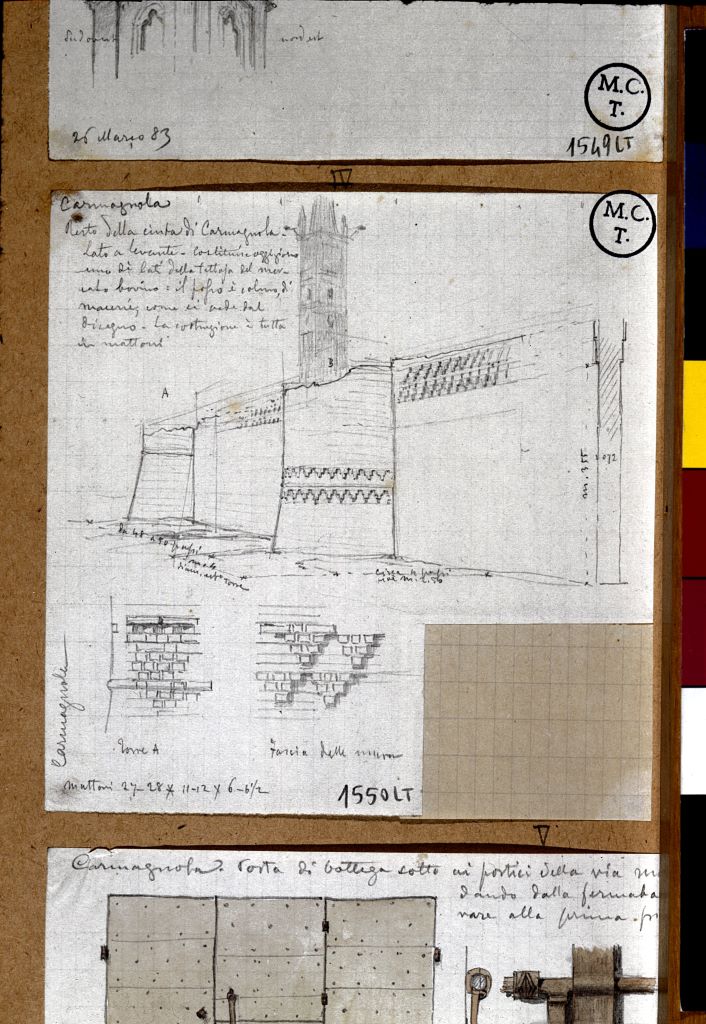 sud ovest nord est
M.C.
T.
26 Marzo 83
1549 LT
IV
Carmagnola
Resto della cinta di Carmagnola -
Lato a levante - costituisce oggigiorno
uno di lati della tettoja del mer-
cato bovino: il fosso è colmo di
macerie, come si vede dal
disegno - La costruzione è tutta
in mattoni
M.C.
T.
A
B
Da 48 a 50 passi
circa 4 passi
Carmagnola
Torre A
Fascia delle mura
Mattoni 27-28 x 11-12 x 6-6½
1550 LT
V
Carmagnola. Porta di bottega sotto ai portici della via
dando dalla fermata
vare alla prima